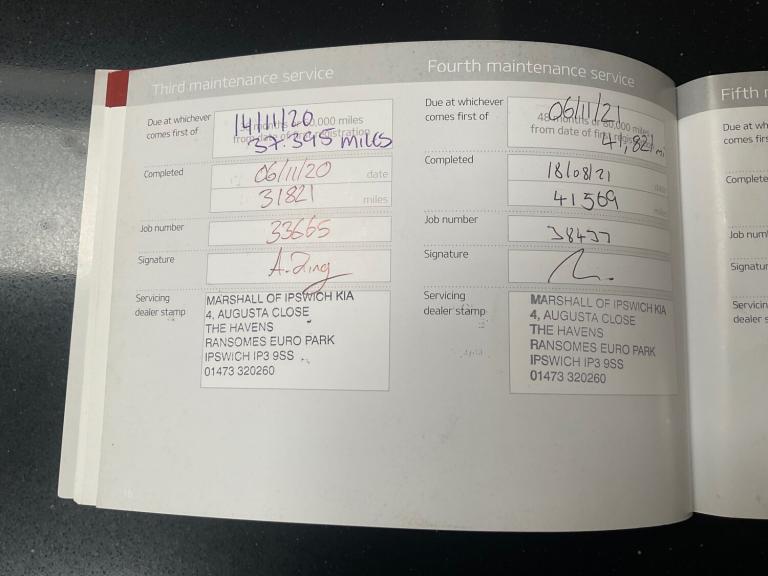 Third maintenance service
Due at whichever
comes first of
14/11/20
37.395 MILES
months or 0,000 miles
from date of first registration
Completed
06/11/20 date
31821 miles
Job number
33665
Signature
Servicing
dealer stamp
MARSHALL OF IPSWICH KIA
4, AUGUSTA CLOSE
THE HAVENS
RANSOMES EURO PARK
IPSWICH IP3 9SS
01473 320260
Fourth maintenance service
Due at whichever
comes first of
06/11/21
48 months or 80,000 miles
from date of first registration
41,821 mi
Completed
18/08/21 date
41569
Job number
38437
Signature
Servicing
dealer stamp
MARSHALL OF IPSWICH KIA
4, AUGUSTA CLOSE
THE HAVENS
RANSOMES EURO PARK
IPSWICH IP3 9SS
01473 320260
Fifth
Due at wh
comes firs
Complete
Job num
Signatur
Servicin
dealer s